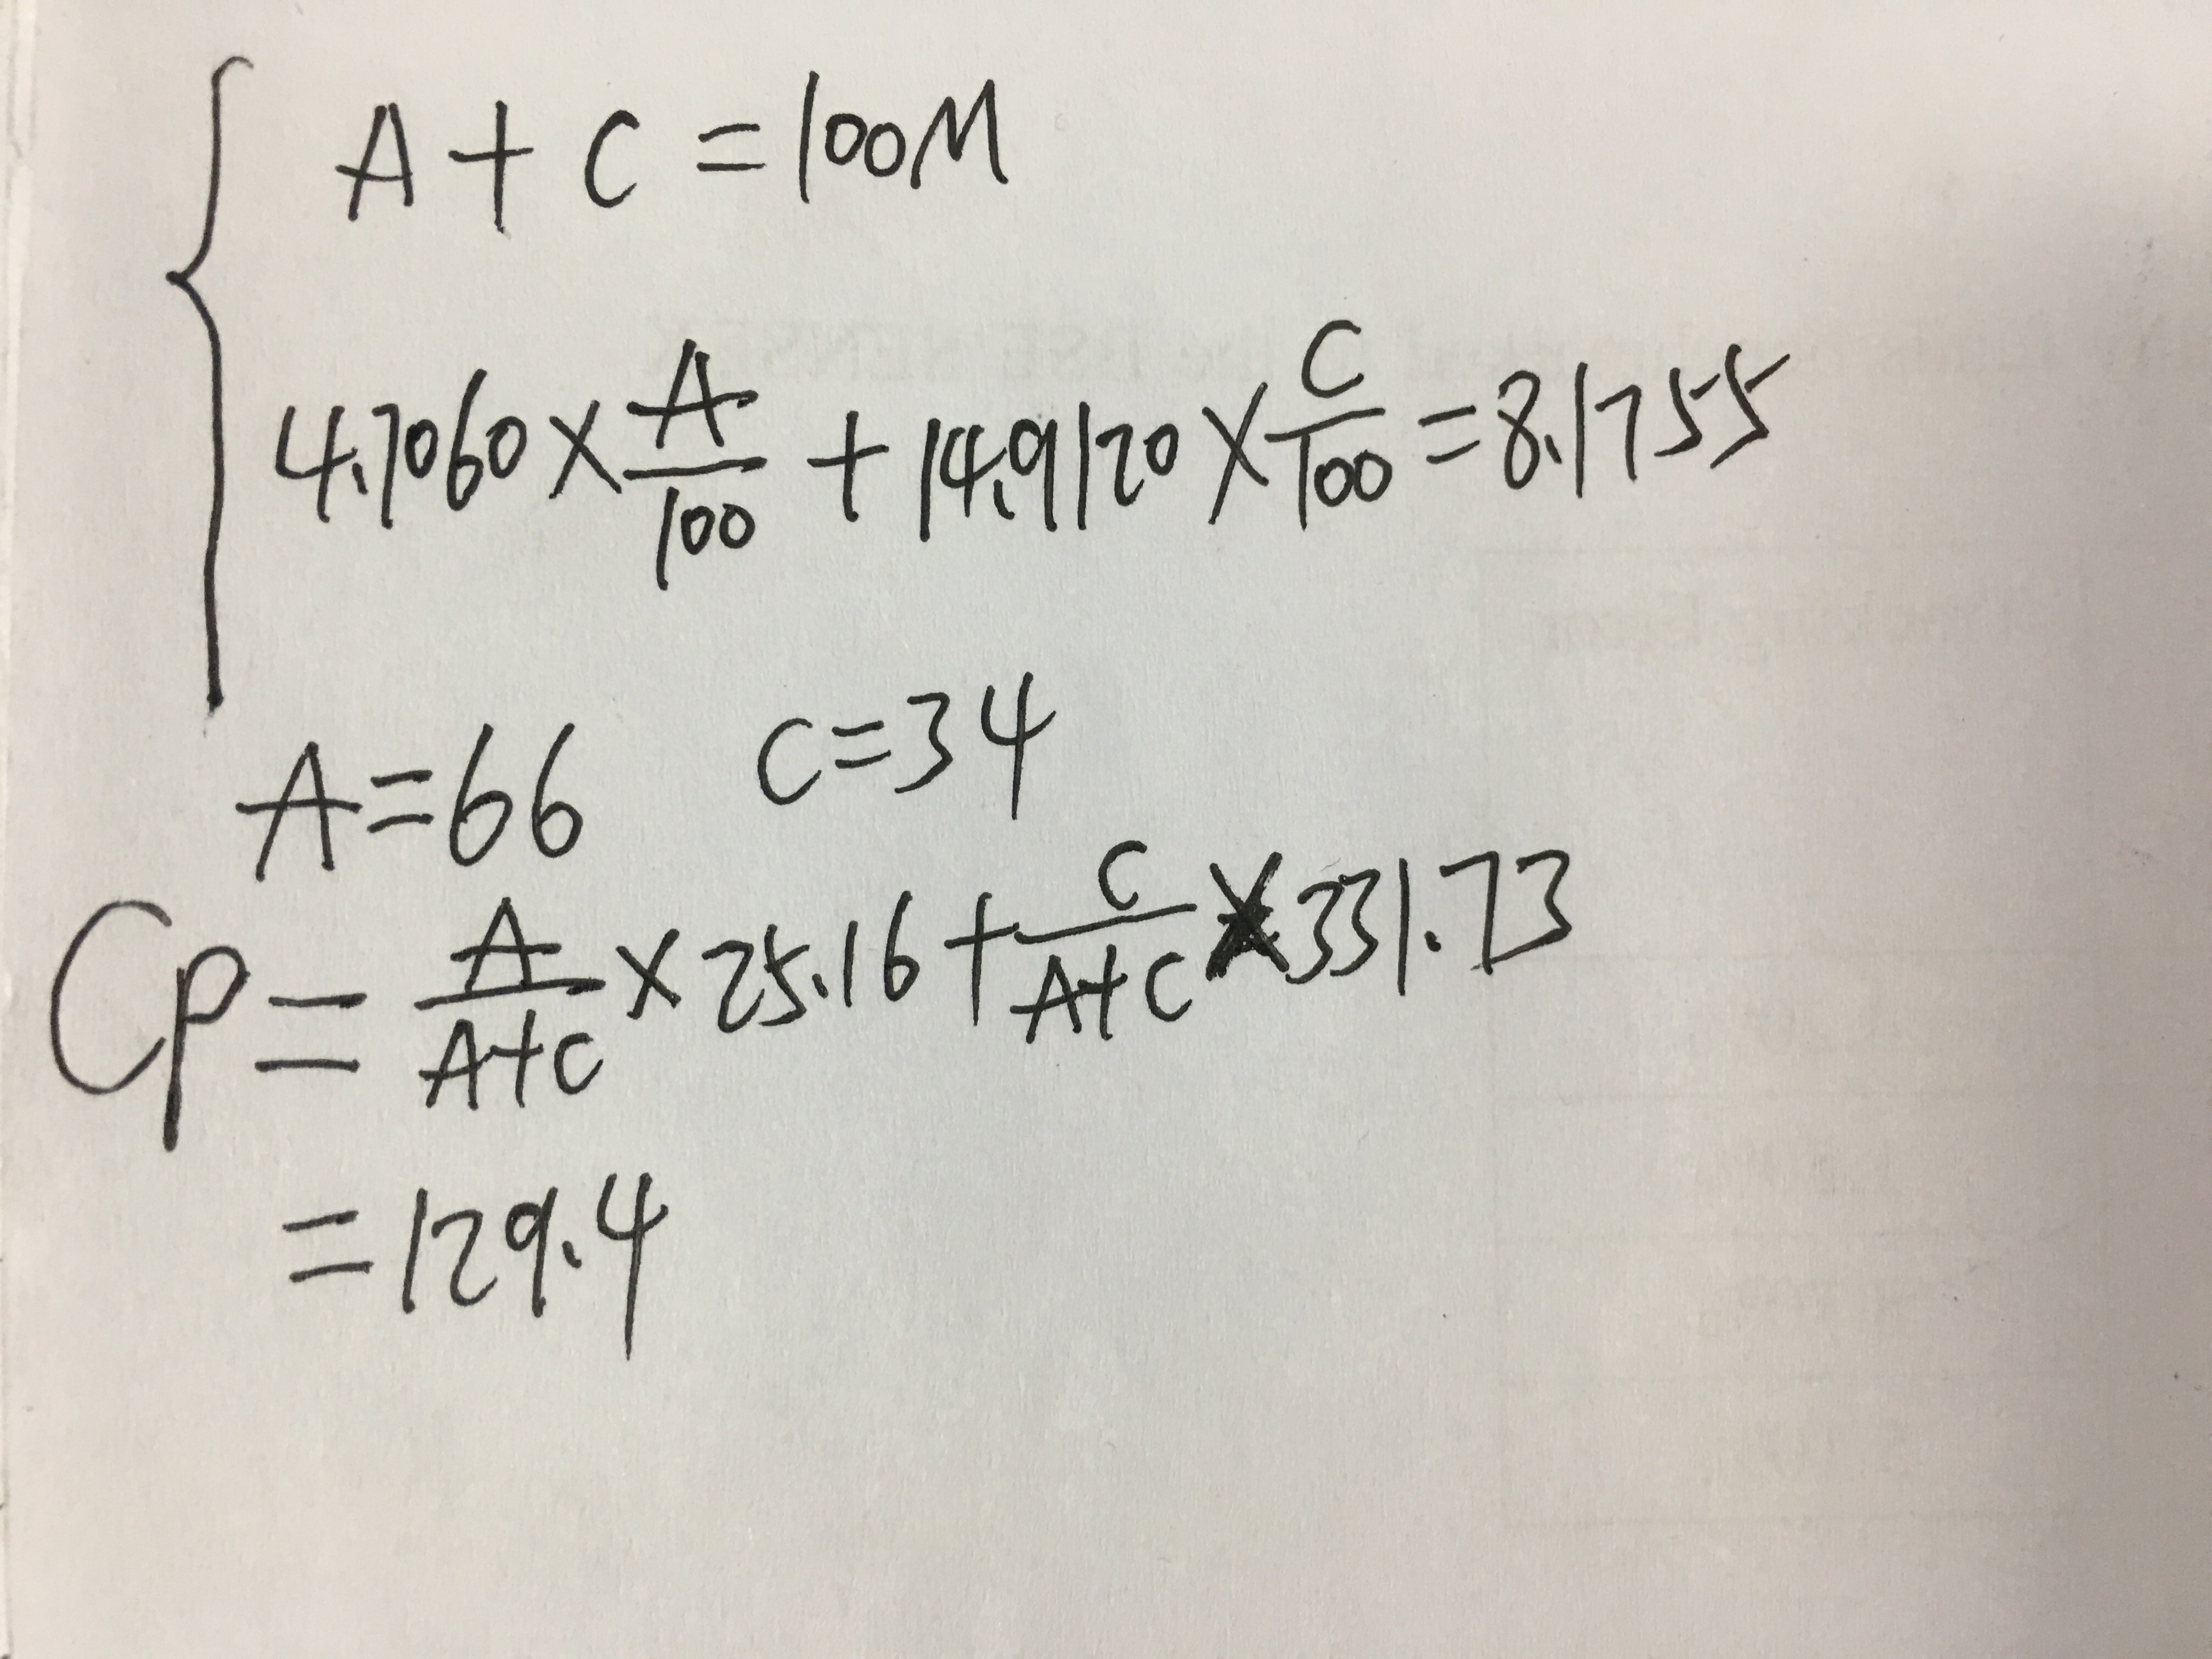 A + C = 100M
4.7060 × A/100 + 14.9120 × C/100 = 8.1755
A = 66 C = 34
Cp = A/A+C × 25.16 + C/A+C × 331.73
= 129.4